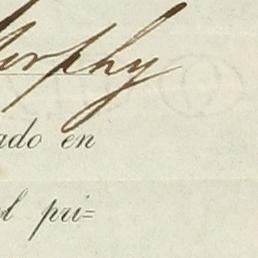 Murphy
ado en
l pri=